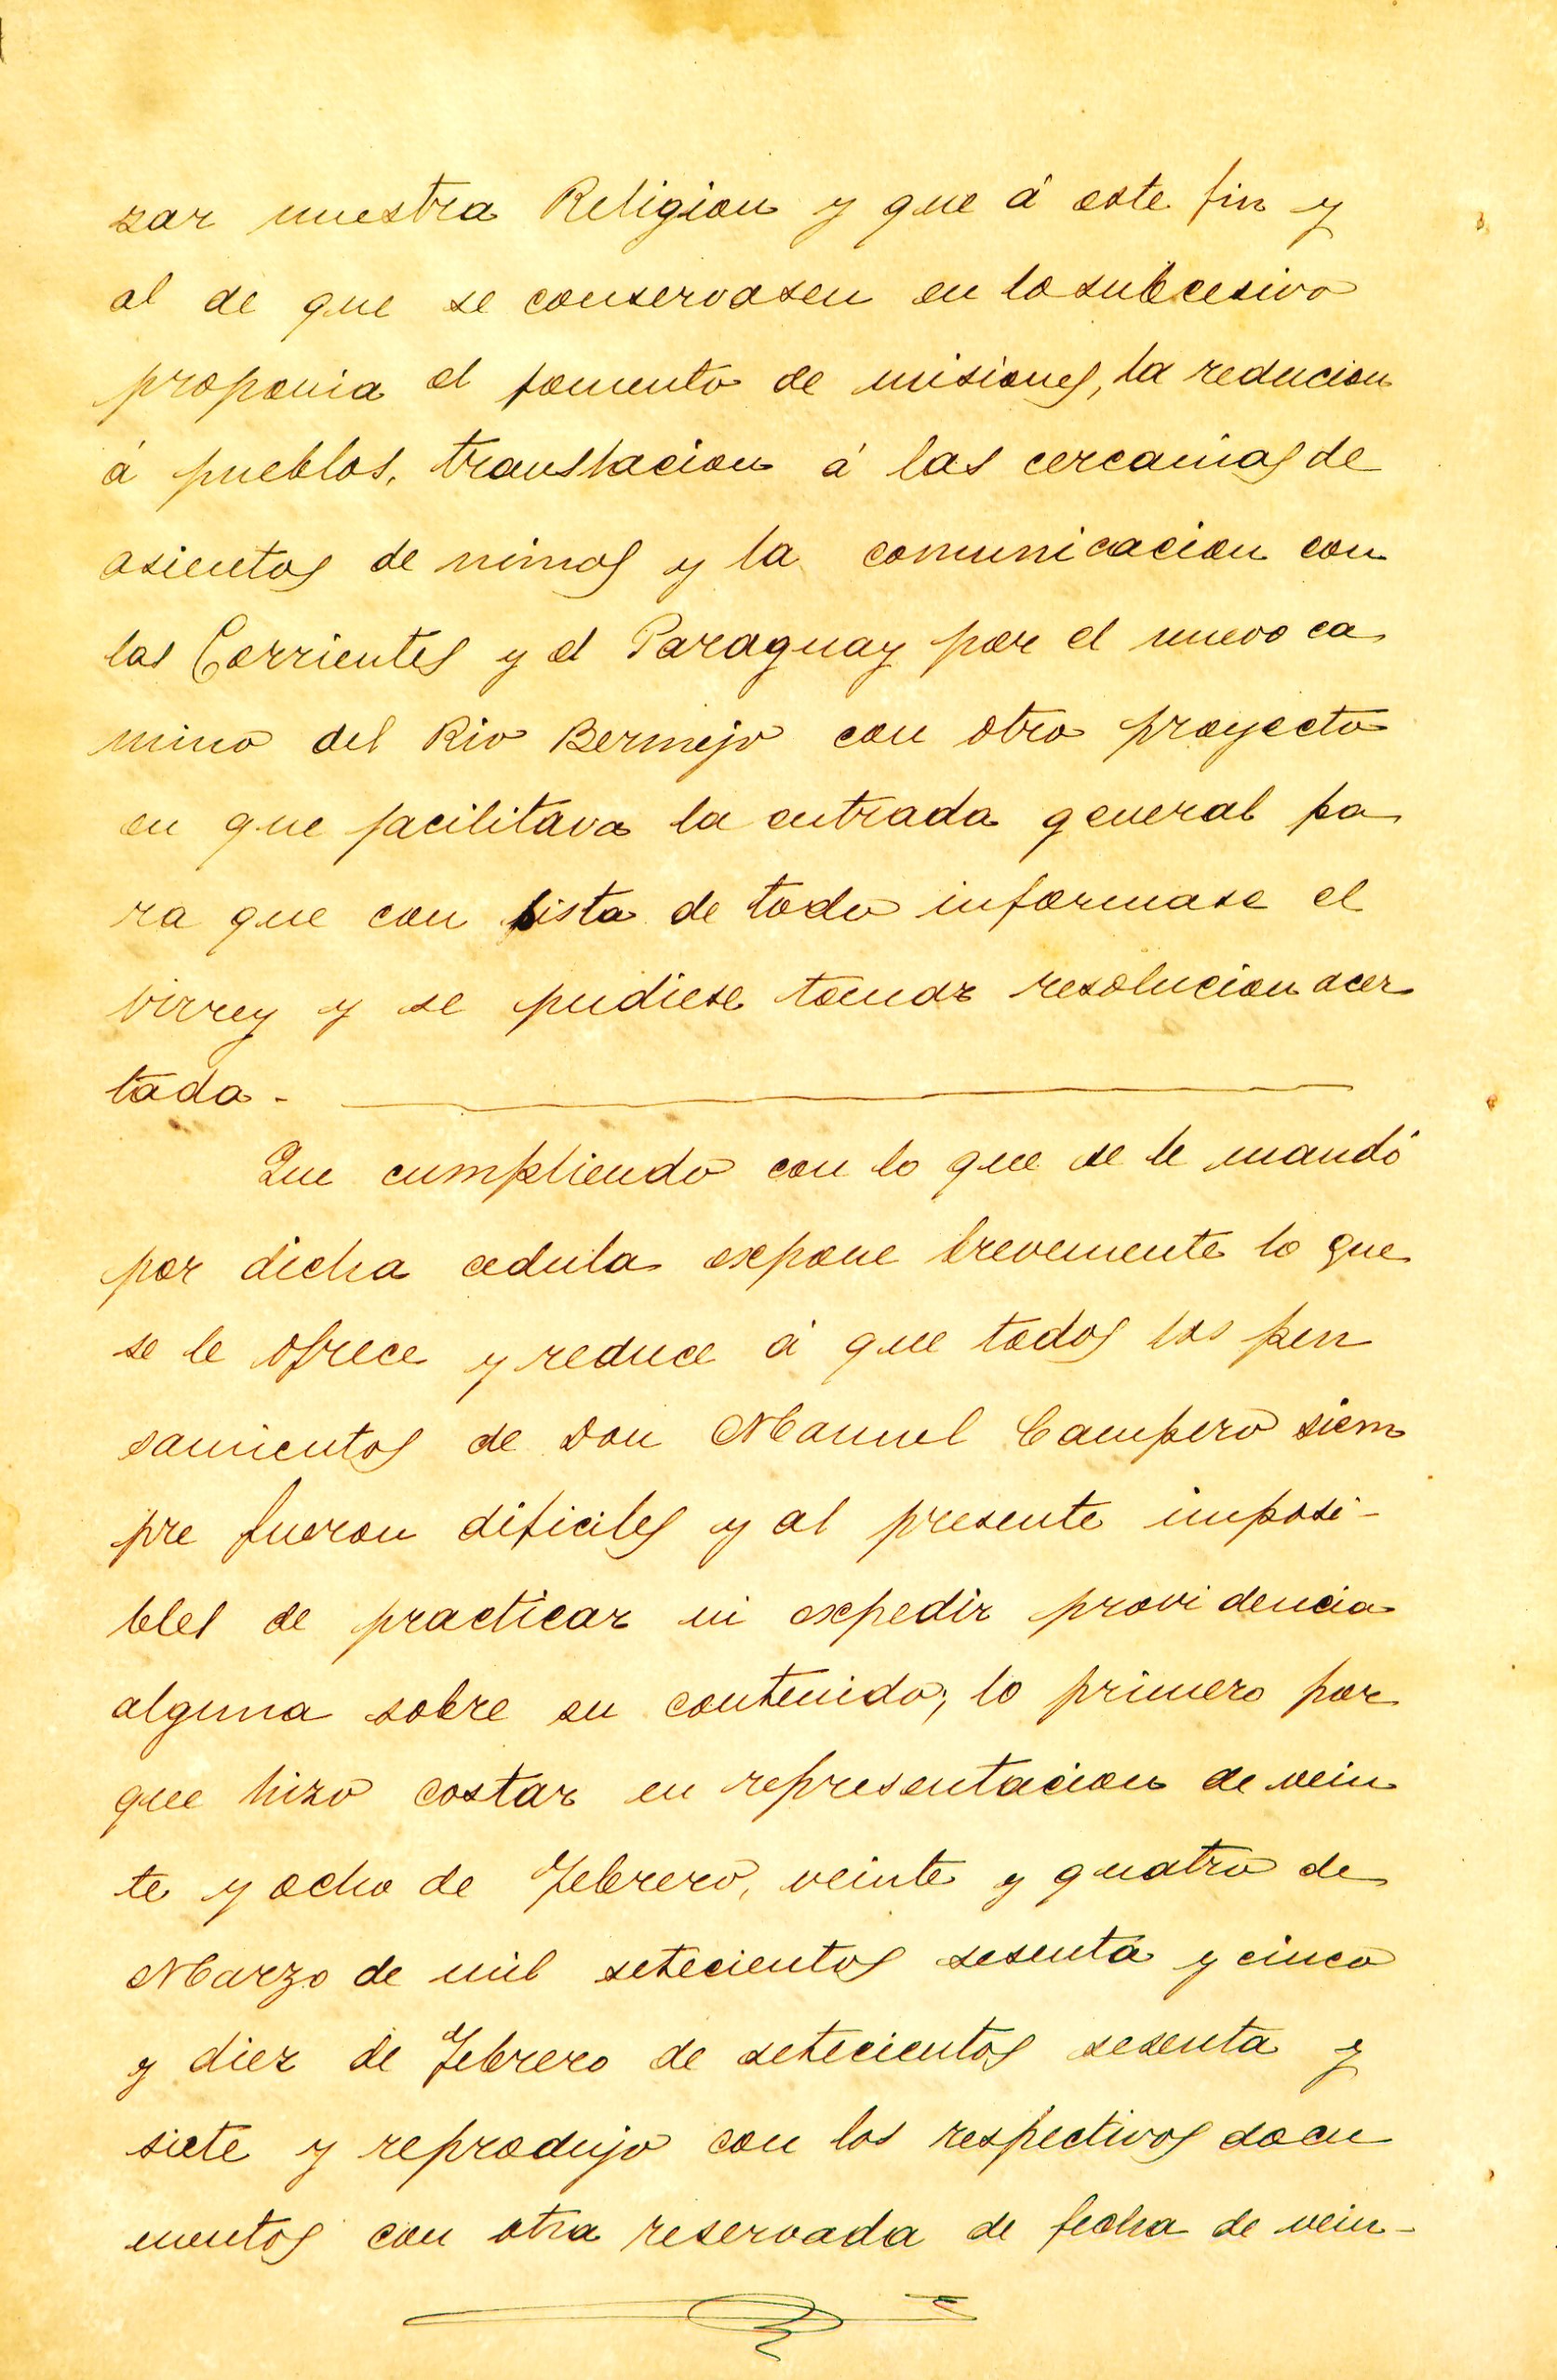 zar nuestra Religion y que á este fin y
al de que se conservasen en lo subcesivo
proponia el fomento de misiones, la reducion
á pueblos, translacion á las cercanias de
asientos de minas y la comunicacion con
las Corrientes y el Paraguay por el nuevo ca
mino del Rio Bermejo con otro proyecto
en que facilitava la entrada general pa
ra que con vista de todo informase el
Virrey y se pudiese tomar resolucion acer
tada.
Que cumpliendo con lo que se le mandó
por dicha cedula expone brevemente lo que
se le ofrece y reduce á que todos los pen
samientos de Don Manuel Campero siem
pre fueron dificiles y al presente imposi-
bles de practicar ni expedir providencia
alguna sobre su contenido; lo primero por
que hizo costar en representacion de vein
te y ocho de Febrero, veinte y quatro de
Marzo de mil setecientos sesenta y cinco
y diez de Febrero de setecientos sesenta y
siete y reprodujo con los respectivos docu
mentos con otra reservada de fecha de vein-